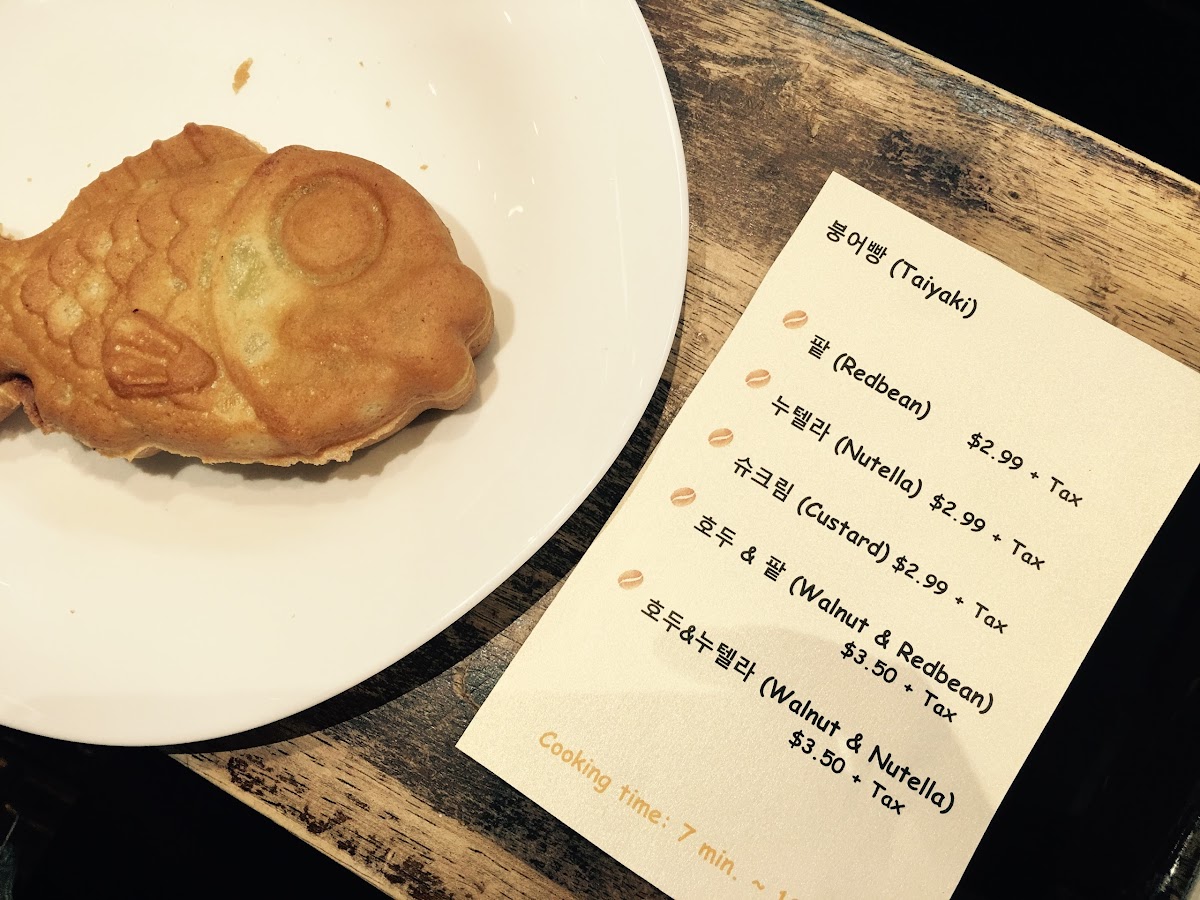 붕어빵 (Taiyaki)
팥 (Redbean) $2.99 + Tax
누텔라 (Nutella) $2.99 + Tax
슈크림 (Custard) $2.99 + Tax
호두 & 팥 (Walnut & Redbean)
$3.50 + Tax
호두&누텔라 (Walnut & Nutella)
$3.50 + Tax
Cooking time: 7 min. ~